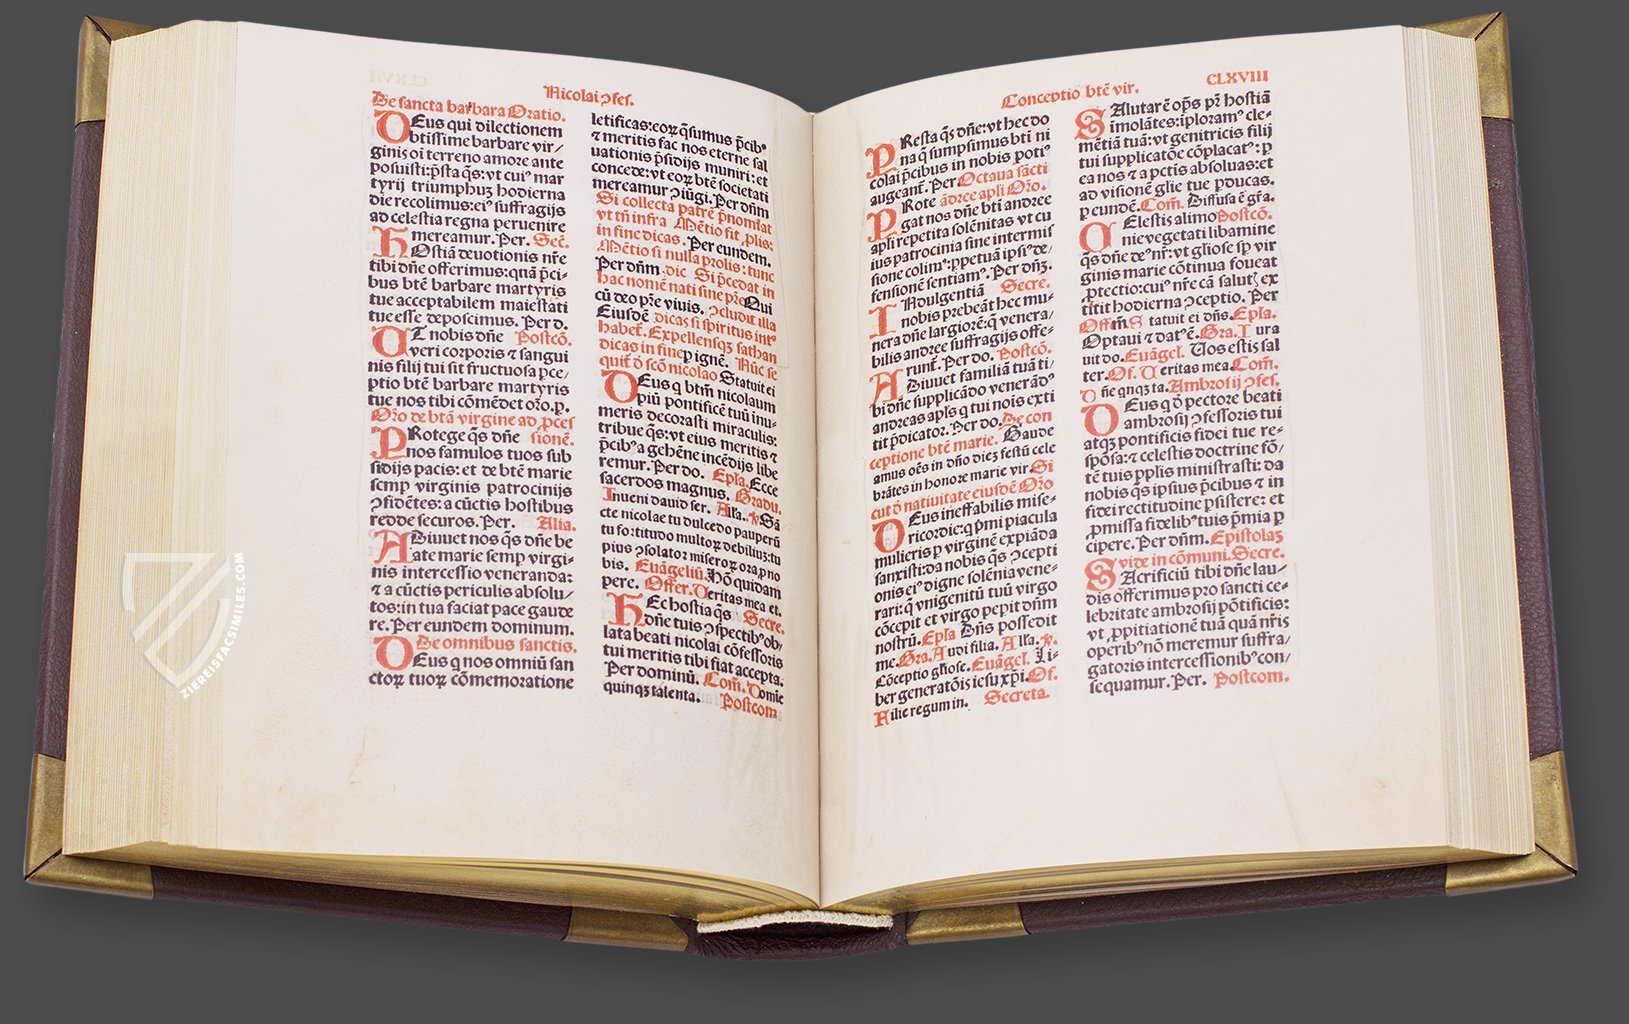 Nicolai ꝯfes.
De sancta barbara Oratio.
DEus qui dilectionem
btissime barbare vir/
ginis oī terreno amore ante
posuisti: p̄sta q̄s: vt cuiꝰ mar
tyrij triumphuꝫ hodierna
die recolimus: eiꝰ suffragijs
ad celestia regna peruenire
mereamur. Per. Sec̄.
HOstiā deuotionis nr̄e
tibi dn̄e offerimus: quā p̄ci-
bus btē barbare martyris
tue acceptabilem maiestati
tue esse deposcimus. Per d.
UT nobis dn̄e Postcō.
veri corporis ⁊ sangui
nis filij tui sit fructuosa ꝑce/
ptio btē barbare martyris
tue nos tibi cōmēdet oro. p.
Oro de btā virgine ad ꝓces
PRotege q̄s dn̄e sionē.
nos famulos tuos sub
sidijs pacis: et de btē marie
semꝑ virginis patrocinijs
ꝯfidētes: a cūctis hostibus
redde securos. Per. Alia.
ADiuuet nos q̄s dn̄e be
ate marie semꝑ virgi-
nis intercessio veneranda:
⁊ a cūctis periculis absolu/
tos: in tua faciat pace gaude
re. Per eundem dominum.
De omnibus sanctis.
DEus q nos omniū san
ctoꝝ tuoꝝ cōmemoratione
letificas: eoꝝ q̄sumus p̄cibꝰ
⁊ meritis fac nos eterne sal
uationis p̄sidijs muniri: et
concede: vt eoꝝ btē societati
mereamur ꝯiūgi. Per dn̄m
Si collecta patrē p̄nomīat
vt tn̄ infra Mētio sit ꝓlis:
in fine dicas. Per eundem.
Mētio si nulla prolis: tunc
Per dn̄m dic Si p̄cedat in
hac nomē nati sine pr̄e Qui
cū deo pr̄e viuis. ꝯcludit illa
Eiusdē dicas si spiritus intꝰ
habet̄. Expellensqꝫ sathan
dicas in fine ꝑ ignē. Nūc se
quit̄ d̄ scō nicolao Statuit ei
DEus q btm̄ nicolaum
piū pontificē tuū inu-
meris decorasti miraculis:
tribue q̄s: vt eius meritis ⁊
p̄cibꝰ a gehēne incēdijs libe
remur. Per do. Epl̄a. Ecce
sacerdos magnus. Gradu.
Inueni dauid ser. Alla. ℣ Sā
cte nicolae tu dulcedo pauperū
tu fortitudo multoꝝ debiliuꝫ: tu
pius ꝯsolator miseroꝝ ora ꝓ no
bis. Euāgeliū. Hō quidam
pere. Offer. Veritas mea et.
HEc hostia q̄s Secre.
dn̄e tuis ꝯspectibꝰ ob/
lata beati nicolai cōfessoris
tui meritis tibi fiat accepta.
Per dominū. Com̄. Domie
quinqꝫ talenta. Postcom
Conceptio btē vir. CLXVIII
PResta q̄s dn̄e: vt hec do
na q̄ sumpsimus bti ni
colai p̄cibus in nobis potiꝰ
augeant̄. Per Octaua sācti
ādree apli Oro.
PRote
gat nos dn̄e bti andree
apli repetita solēnitas vt cu
ius patrocinia sine intermis
sione colimꝰ: ꝑpetuā ipsiꝰ de/
fensionē sentiamꝰ. Per dn̄ꝫ.
INdulgentiā Secre.
nobis prebeāt hec mu-
nera dn̄e largiorē: q̄ venera/
bilis andree suffragijs offe-
runt̄. Per do. Postcō.
ADiuuet familiā tuā ti/
bi dn̄e supplicādo venerādꝰ
andreas apl̄s q tui nois exti
tit p̄dicator. Per do. De con
ceptione btē marie. Gaude
amus oēs in dn̄o dieꝫ festū cele
brātes in honore marie vir. Si
cut d̄ natiuitate eiusdē Oro
DEus ineffabilis mise-
ricordie: q p̄mi piacula
mulieris ꝑ virginē expiāda
sanxisti: da nobis q̄s ꝯcepti
onis eiꝰ digne solēnia vene-
rari: q̄ vnigenitū tuū virgo
cōcepit et virgo peꝑit dn̄m
nostrū. Epl̄a Dn̄s possedit
me. Gra. Audi filia. Alla. ℣.
Cōceptio gl̄iose. Euāgel. Li-
ber generatōis iesu xp̄i. Of.
Filie regum in. Secreta.
SAlutarē op̄s pr̄ hostiā
imolātes: iploramꝰ cle-
mētiā tuā: vt genitricis filij
tui supplicatōe cōplacatꝰ: ꝑ
ea nos ⁊ a pctis absoluas: et
ad visionē glie tue ꝑducas.
ꝑ eundē. Com̄. Diffusa ē gr̄a.
CElestis alimo Postcō.
nie vegetati libamine
q̄s dn̄e deꝰ nr̄: vt gliose sꝑ vir
ginis marie cōtinua foueat
ꝓtectio: cuiꝰ nr̄e cā salutꝭ ex
titit hodierna ꝯceptio. Per
Offm̄ Statuit ei dn̄s. Epl̄a.
Optaui ⁊ datꝰ ē. Gra. Iura
uit do. Euāgel. Vos estis sal
ter. Of. Veritas mea. Com̄.
Dn̄e qnqꝫ ta. Ambrosij ꝯfes.
DEus q d̄ pectore beati
ambrosij ꝯfessoris tui
atqꝫ pontificis fidei tue re-
spōsa: ⁊ celestis doctrine fō/
tē tuis pplis ministrasti: da
nobis q̄s ipsius p̄cibus ⁊ in
fidei rectitudine ꝑsistere: et
ꝓmissa fidelibꝰ tuis p̄mia ꝑ
cipere. Per dn̄m. Epistolaꝫ
vide in cōmuni. Secre.
SAcrificiū tibi dn̄e lau/
dis offerimus pro sancti ce-
lebritate ambrosij pōtificis:
vt ꝓpitiationē tuā quā nr̄is
operibꝰ nō meremur suffra/
gatoris intercessionibꝰ con/
sequamur. Per. Postcom.
ZIEREISFACSIMILES.COM